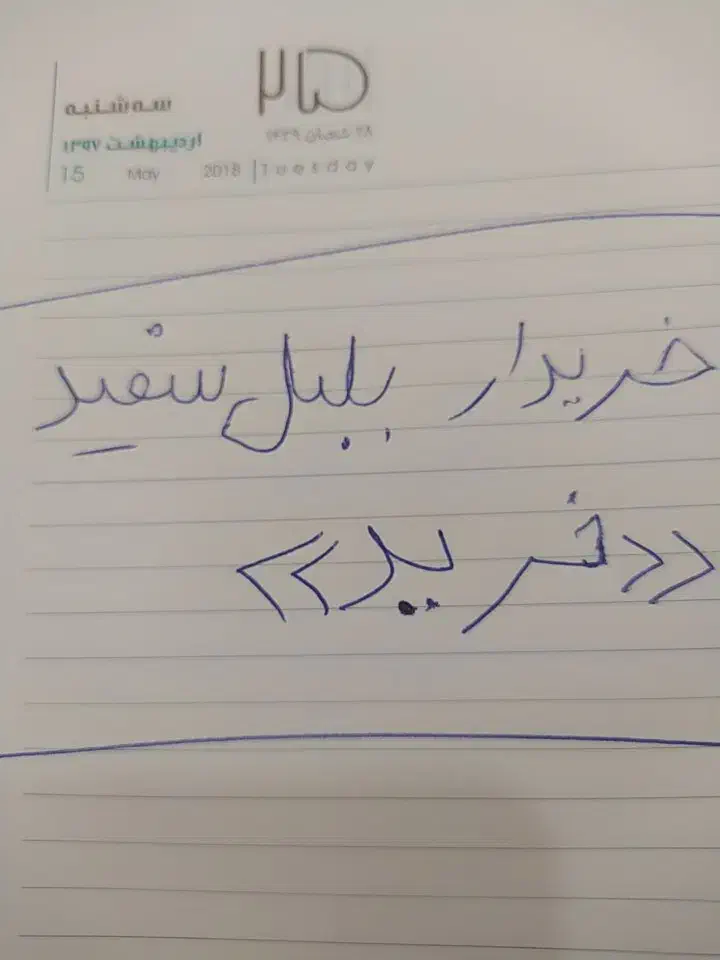 ۲۵
سه‌شنبه
۲۸ شعبان ۱۴۳۹
اردیبهشت ۱۳۹۷
15 May 2018 | Tuesday
خریدار بلبل سفید
«فرید»